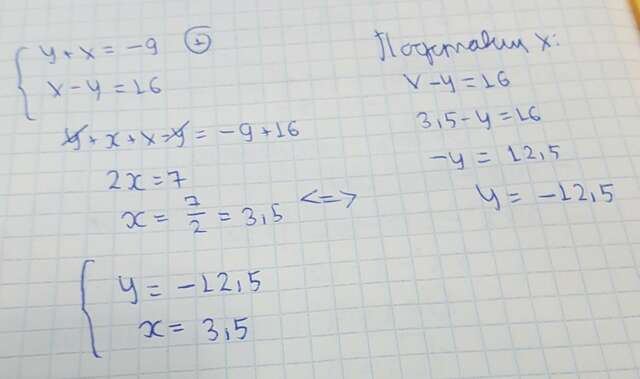 y + x = -9 (+)
x - y = 16
y + x + x - y = -9 + 16
2x = 7
x = 7/2 = 3,5 <=>
Подставим x:
x - y = 16
3,5 - y = 16
-y = 12,5
y = -12,5
y = -12,5
x = 3,5